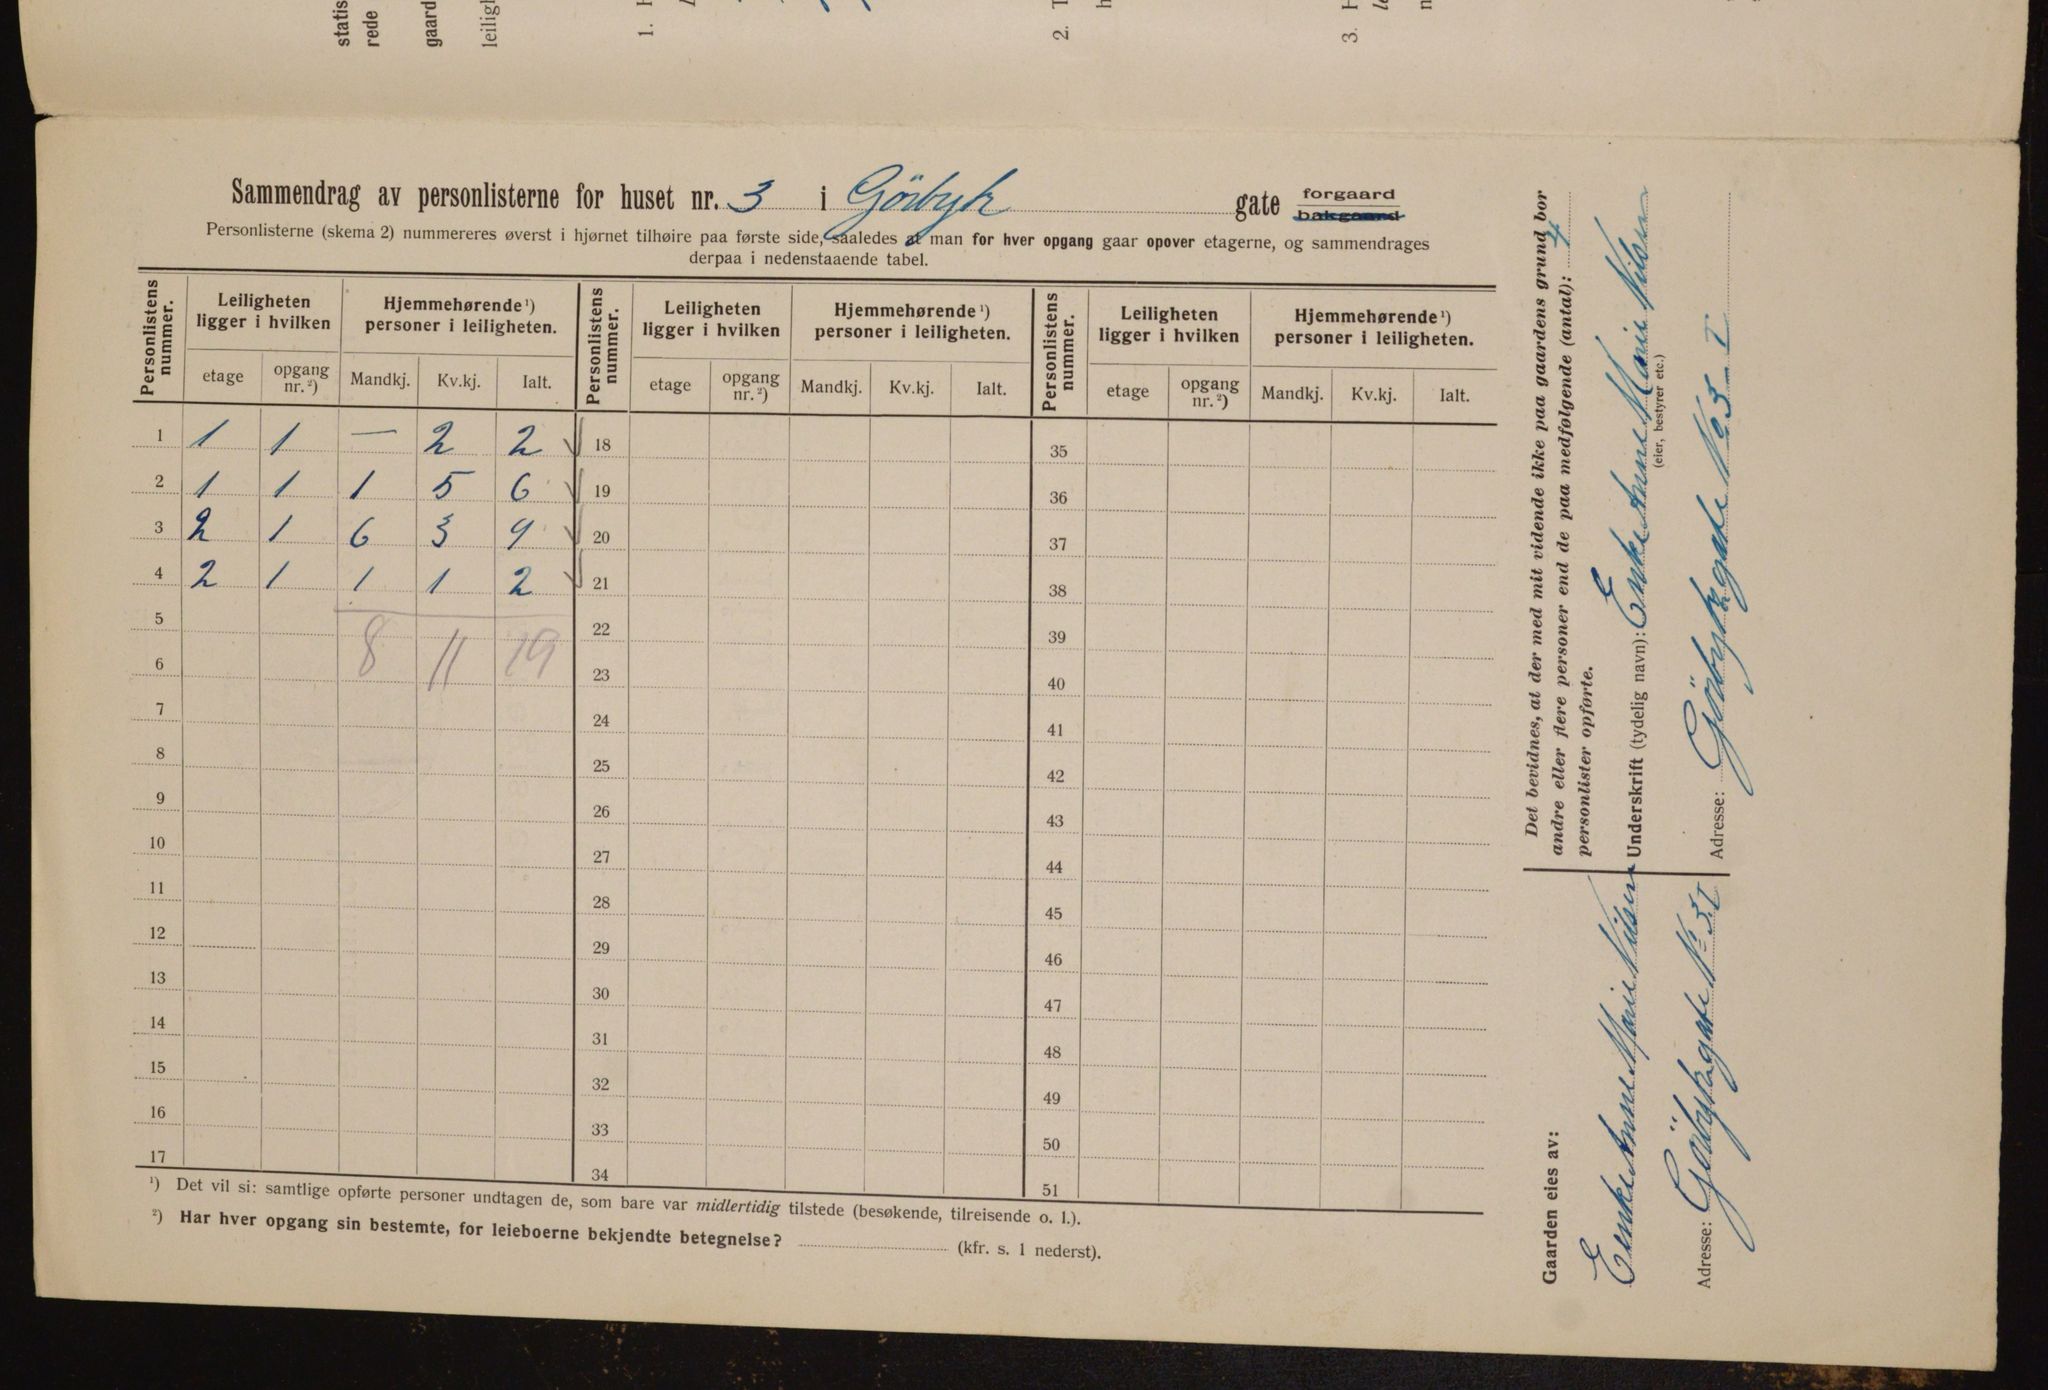 statis
rede
gaard
leiligh
1.
2. T
3.
Sammendrag av personlisterne for huset nr. 3 i Görbyk gate forgaard
bakgaard
Personlisterne (skema 2) nummereres øverst i hjørnet tilhøire paa første side, saaledes at man for hver opgang gaar opover etagerne, og sammendrages
derpaa i nedenstaaende tabel.
Personlistens nummer. Leiligheten ligger i hvilken Hjemmehørende¹) personer i leiligheten. Personlistens nummer. Leiligheten ligger i hvilken Hjemmehørende¹) personer i leiligheten. Personlistens nummer. Leiligheten ligger i hvilken Hjemmehørende¹) personer i leiligheten.
etage opgang nr.²) Mandkj. Kv.kj. Ialt. etage opgang nr.²) Mandkj. Kv.kj. Ialt. etage opgang nr.²) Mandkj. Kv.kj. Ialt.
1 1 1 — 2 2 √ 18 35
2 1 1 1 5 6 √ 19 36
3 2 1 6 3 9 √ 20 37
4 2 1 1 1 2 √ 21 38
5 22 39
6 8 11 19 23 40
7 24 41
8 25 42
9 26 43
10 27 44
11 28 45
12 29 46
13 30 47
14 31 48
15 32 49
16 33 50
17 34 51
¹) Det vil si: samtlige opførte personer undtagen de, som bare var midlertidig tilstede (besøkende, tilreisende o. l.).
²) Har hver opgang sin bestemte, for leieboerne bekjendte betegnelse? (kfr. s. 1 nederst).
Gaarden eies av:
Enke Anne Marie Nilsen
Adresse: Görbykgate Nº 3 I
Det bevidnes, at der med mit vidende ikke paa gaardens grund bor
andre eller flere personer end de paa medfølgende (antal): 4
personlister opførte.
Underskrift (tydelig navn): Enke Anne Marie Nilsen
(eier, bestyrer etc.)
Adresse: Görbykgate Nº 3 I